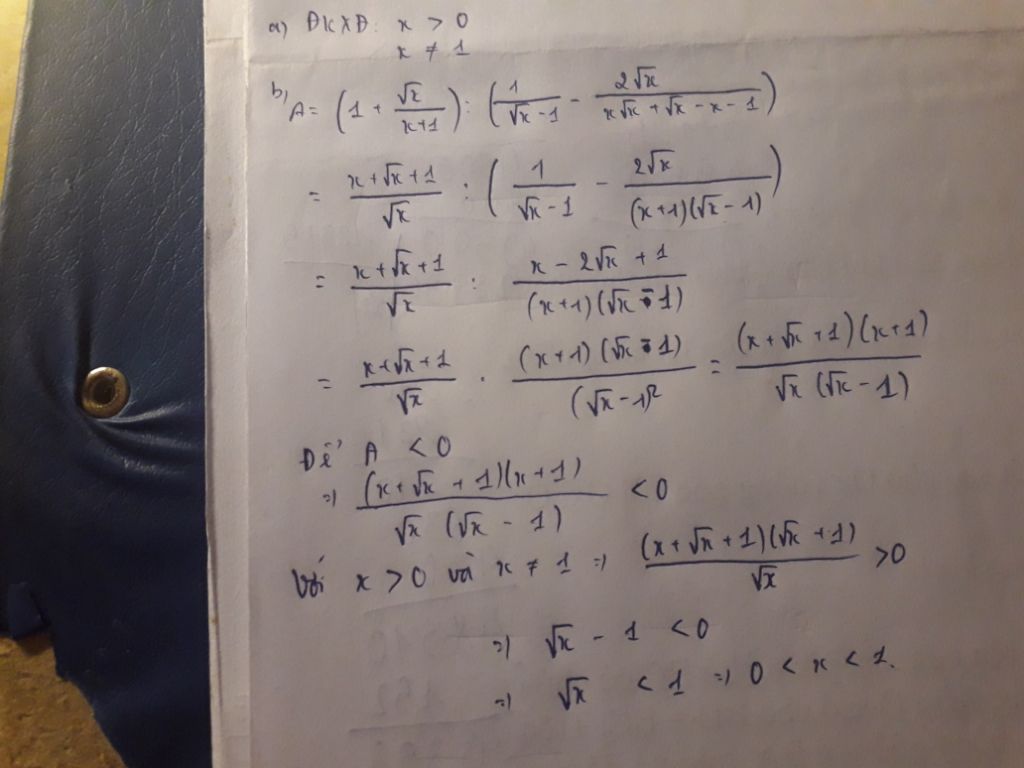 a) ĐKXĐ: x > 0
x ≠ 1
b, A = (1 + √x/(x+1)) : (1/(√x - 1) - 2√x/(x√x + √x - x - 1))
= (x + √x + 1)/√x : (1/(√x - 1) - 2√x/((x+1)(√x - 1)))
= (x + √x + 1)/√x : (x - 2√x + 1)/((x+1)(√x - 1))
= (x + √x + 1)/√x . ((x+1)(√x - 1))/(√x - 1)² = ((x + √x + 1)(x + 1))/(√x (√x - 1))
Để A < 0
=> ((x + √x + 1)(x + 1))/(√x (√x - 1)) < 0
Với x > 0 và x ≠ 1 => ((x + √x + 1)(√x + 1))/√x > 0
=> √x - 1 < 0
=> √x < 1 => 0 < x < 1.